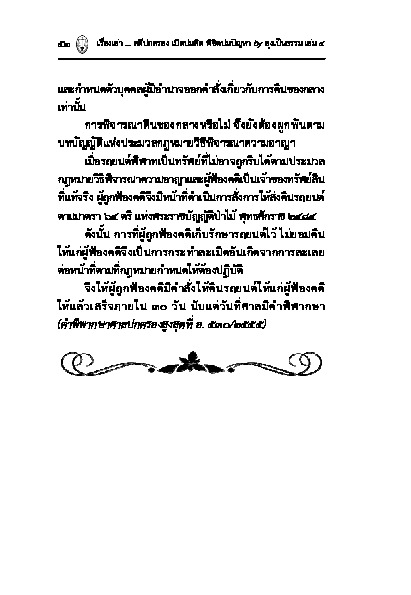 ๕๒ เรื่องเล่า ... คดีปกครอง เปิดปมคิด พิชิตปมปัญหา by ลุงเป็นธรรม เล่ม ๕
และกำหนดตัวบุคคลผู้มีอำนาจออกคำสั่งเกี่ยวกับการคืนของกลาง
เท่านั้น
การพิจารณาคืนของกลางหรือไม่ จึงยังต้องผูกพันตาม
บทบัญญัติแห่งประมวลกฎหมายวิธีพิจารณาความอาญา
เมื่อรถยนต์พิพาทเป็นทรัพย์ที่ไม่อาจถูกริบได้ตามประมวล
กฎหมายวิธีพิจารณาความอาญาและผู้ฟ้องคดีเป็นเจ้าของทรัพย์สิน
ที่แท้จริง ผู้ถูกฟ้องคดีจึงมีหน้าที่ดำเนินการสั่งการให้ส่งคืนรถยนต์
ตามมาตรา ๖๔ ตรี แห่งพระราชบัญญัติป่าไม้ พุทธศักราช ๒๔๘๔
ดังนั้น การที่ผู้ถูกฟ้องคดีเก็บรักษารถยนต์ไว้ ไม่ยอมคืน
ให้แก่ผู้ฟ้องคดีจึงเป็นการกระทำละเมิดอันเกิดจากการละเลย
ต่อหน้าที่ตามที่กฎหมายกำหนดให้ต้องปฏิบัติ
จึงให้ผู้ถูกฟ้องคดีมีคำสั่งให้คืนรถยนต์ให้แก่ผู้ฟ้องคดี
ให้แล้วเสร็จภายใน ๓๐ วัน นับแต่วันที่ศาลมีคำพิพากษา
(คำพิพากษาศาลปกครองสูงสุดที่ อ. ๕๓๐/๒๕๕๕)